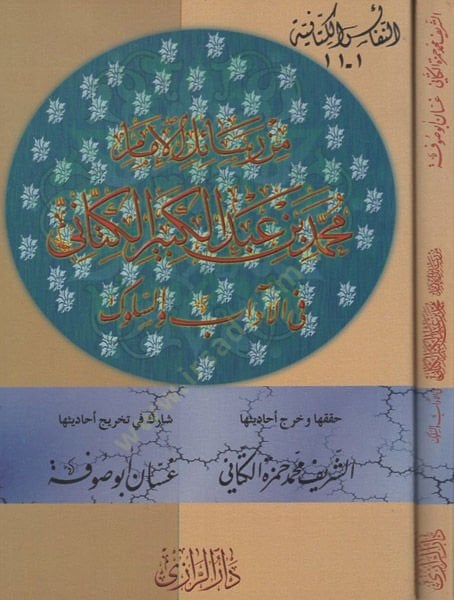 النفائس الكتانية
١-١١
من رسائل الإمام
محمد بن عبد الكبير الكتاني
في الآداب والسلوك
حققها وخرج أحاديثها
الشريف محمد حمزة الكتاني
شارك في تخريج أحاديثها
غسان أبو صوفة
دار الرازي
الشريف محمد حمزة الكتاني
غسان أبو صوفة
من رسائل الإمام
محمد بن عبد الكبير الكتاني
في الآداب والسلوك
دار الرازي